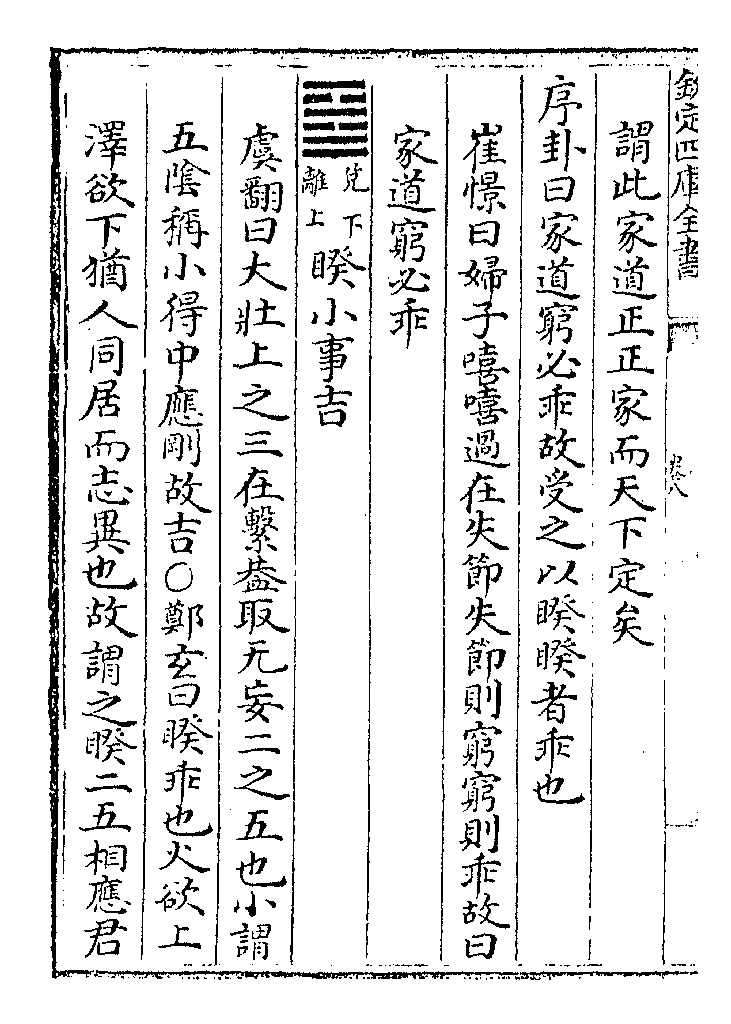 欽定四庫全書 卷八
謂此家道正正家而天下定矣
序卦曰家道窮必乖故受之以睽睽者乖也
崔憬曰婦子嘻嘻過在失節失節則窮窮則乖故曰
家道窮必乖
䷥兌下離上睽小事吉
虞翻曰大壯上之三在繫葢取无妄二之五也小謂
五陰稱小得中應剛故吉○鄭玄曰睽乖也火欲上
澤欲下猶人同居而志異也故謂之睽二五相應君